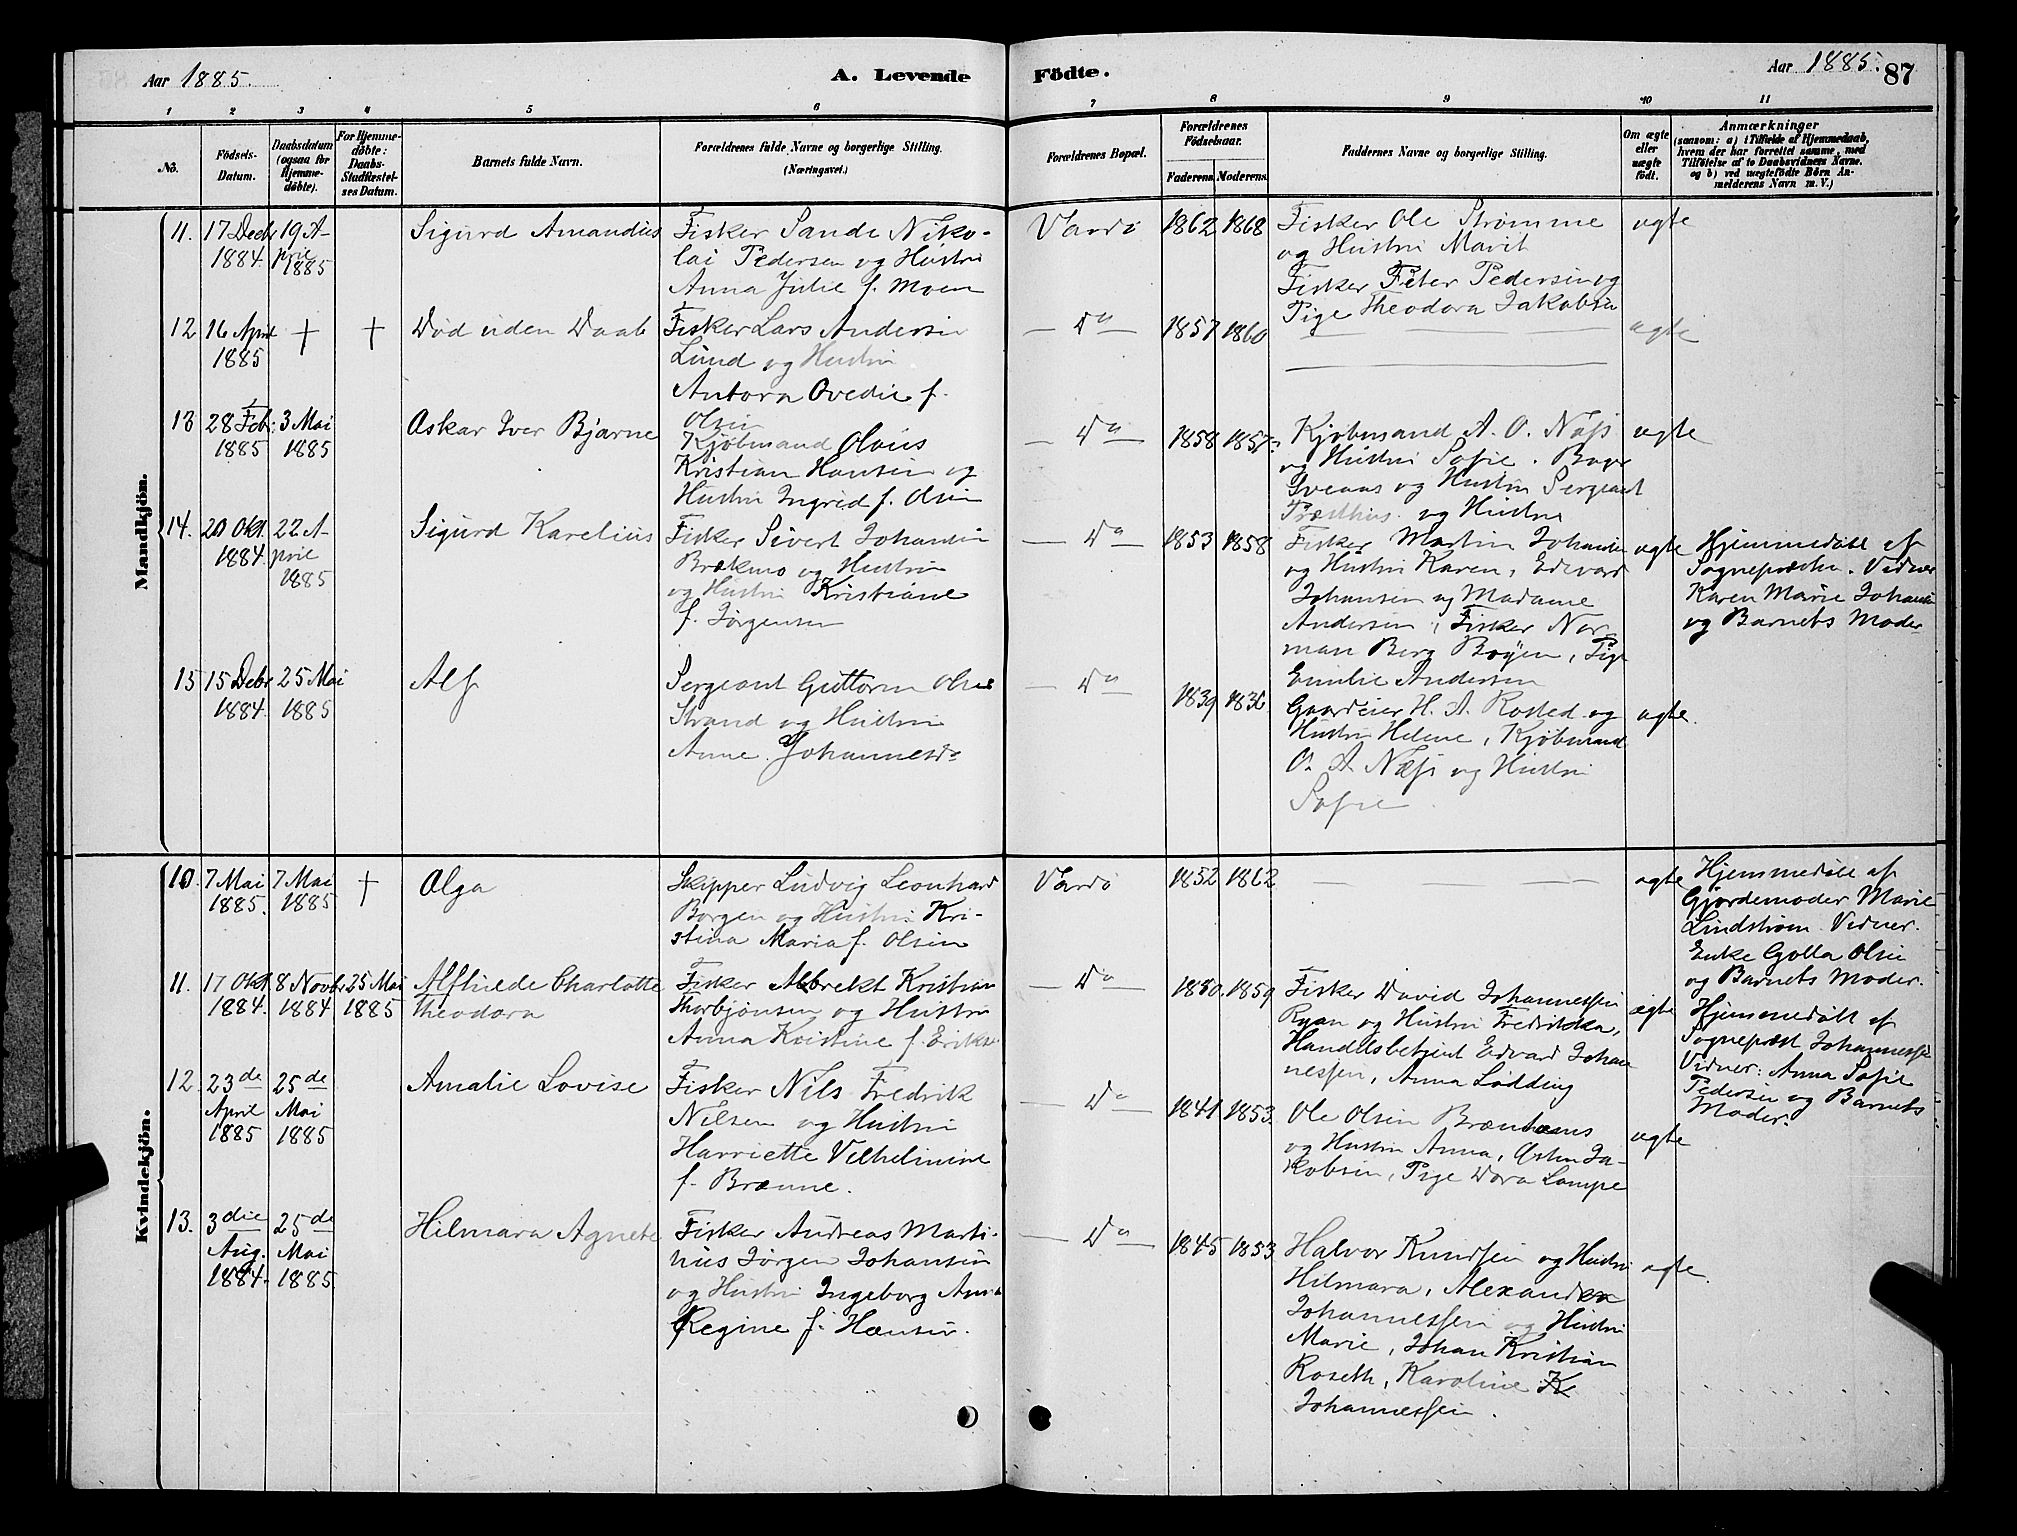 Aar 1885.
A. Levende
Födte.
Aar 1885.
87
1 2 3 4 5 6 7 8 9 10 11
No.
Födsels-
Datum.
Daabsdatum
(ogsaa for
Hjemme-
döbte).
For Hjemme-
döbte:
Daabs-
Stadfæstel-
ses Datum.
Barnets fulde Navn.
Forældrenes fulde Navne og borgerlige Stilling.
(Næringsvei.)
Forældrenes Bopæl.
Forældrenes
Födselsaar.
Faderens. Moderens.
Faddernes Navne og borgerlige Stilling.
Om ægte
eller
uægte
födt.
Anmærkninger
(saasom: a) i Tilfælde af Hjemmedaab,
hvem der har forrettet samme, med
Tilföielse af to Daabsvidners Navne.
og b) ved uægtefödte Börn An-
melderens Navn m. V.)
Mandkjön.
11.
17 Decbr
1884.
19 A-
pril
1885
Sigurd Amandus
Fisker Sande Niko-
lai Pedersen og Hustru
Anna Julie f. Moen
Vardö
1862
1868
Fisker Ole Strømme
og Hustru Marit
Fisker Peter Pedersen og
Pige Theodora Jakobsen
ægte
12
16 April
1885
†
†
Død uden Daab
Fisker Lars Andersen
Lund og Hustru
Antora Ovedie f.
Olsen
— Do —
1857
1860
ægte
13
28 Febr:
1885
3 Mai
1885
Askar Iver Bjarne
Kjöbmand Olaus
Kristian Hansen og
Hustru Ingrid f. Olsen
— Do —
1858
1857
Kjøbmand A. O. Næss
og Hustru Sofie. Bager
Sveaas og Hustru Sergeant
Præsthus og Hustru
ægte
14.
20 Okt.
1884.
22 A-
pril
1885
Sigurd Karelius
Fisker Sivert Johansen
Brækmo og Hustru
og Hustru Kristiane
f. Jørgensen
— Do —
1853
1858
Fisker Martin Johansen
og Hustru Karen, Edvard
Johansen og Madame
Andersen, Fisker Nor-
man Berg Bøyen, Pige
Emilie Andersen
ægte
Hjemmedøbt af
Sognepræsten. Vidner
Karen Marie Johansen
og Barnets Moder
15
15 Debr
1884.
25 Mai
1885
Alf
Sergeant Guttorm Olsen
Strand og Hustru
Anne Johannesdr
— Do —
1839
1836
Gaardeier H. A. Rosted og
Hustru Helene, Kjøbmand
O. A. Næss og Hustru
Sofie
ægte.
Kvindekjön.
10.
7 Mai
1885.
7 Mai
1885
†
Olga
Skipper Ludvig Leonhard
Borgen og Hustru Kri-
stina Maria f. Olsen
Vardö
1852
1862
— — — —
ægte
Hjemmedøbt af
Gjordemoder Marie
Lindstrøm. Vidner.
Enke Golla Olsen
og Barnets Moder.
11.
17 Okt.
1884.
8 Novbr
1884
25 Mai
1885
Alfhilde Charlotte
Theodora
Fisker Albrekt Kristian
Thorbjönsen og Hustru
Anna Kristine f. Eriksen
— Do —
1850.
1859
Fisker David Johannessen
Ryan og Hustru Fredrikka,
Handelsbetjent Edvard Johan
nessen, Anna Lødding
ægte
Hjemmedøbt af
Sognepræst Johannessen
Vidner: Anna Sofie
Pedersen og Barnets
Moder.
12.
23de
April
1885
25de
Mai
1885
Amalie Lovise
Fisker Nils Fredrik
Nilsen og Hustru
Harriette Vilhelmine
f. Brænne.
— Do —
1841
1853.
Ole Olsen Brænhaus
og Hustru Anna, Østen Ja-
kobsen, Pige Dora Lampe
ægte
13.
3die
Aug.
1884.
25de
Mai
1885
Hilmara Agnete
Fisker Andreas Marti-
nus Jørgen Johansen
og Hustru Ingeborg Anna
Regine f. Hansen.
— Do —
1845
1853
Halvor Knudsen og Hustru
Hilmara, Alexander
Johannessen og Hustru
Marie, Johan Kristian
Roseth, Karoline K
Johannessen.
ægte.